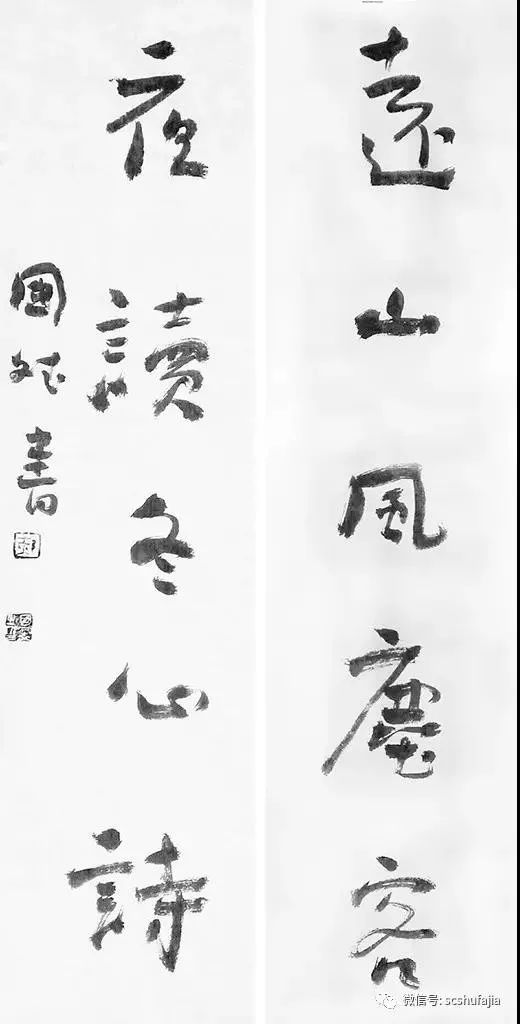 遠山風塵客
夜讀冬心詩
斌書
微信号: scshufajia